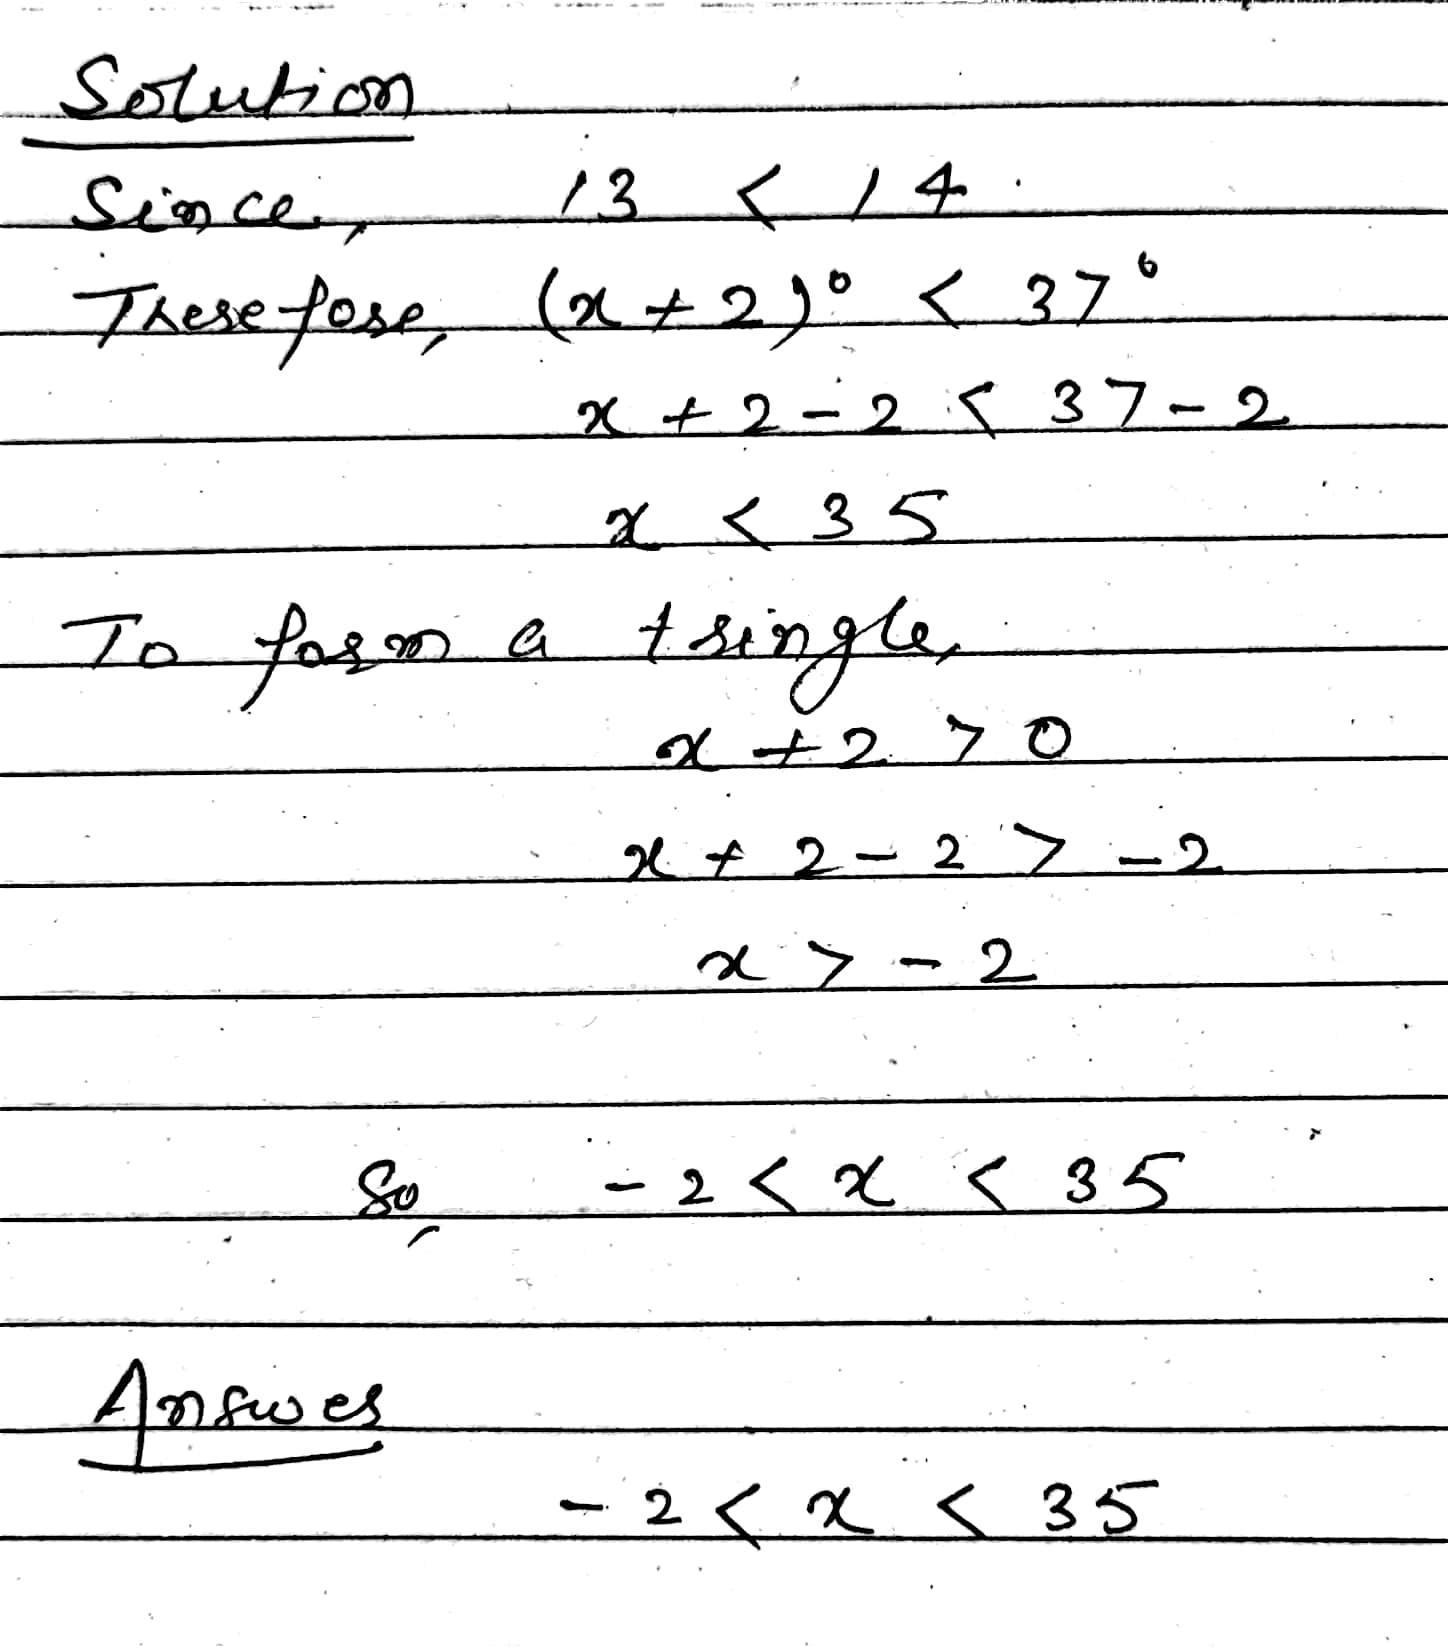 Solution
Since, 13 < 14
Therefore, (x + 2)° < 37°
x + 2 - 2 < 37 - 2
x < 35
To form a tringle,
x + 2 > 0
x + 2 - 2 > -2
x > -2
So, -2 < x < 35
Answer
-2 < x < 35